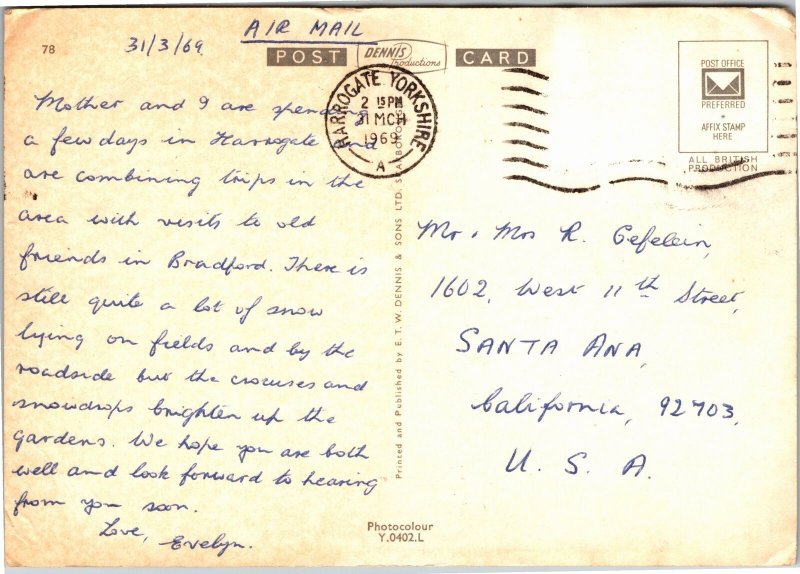 78
31/3/69
AIR MAIL
POST
DENNIS
Productions
CARD
HARROGATE YORKSHIRE
2 15PM
31 MCH
1969
A
POST OFFICE
PREFERRED
AFFIX STAMP
HERE
ALL BRITISH
PRODUCTION
Mother and I are spending
a few days in Harrogate and
are combining trips in the
area with visits to old
friends in Bradford. There is
still quite a lot of snow
lying on fields and by the
roadside but the crocuses and
snowdrops brighten up the
gardens. We hope you are both
well and look forward to hearing
from you soon.
Love,
Evelyn.
Printed and Published by E. T. W. DENNIS & SONS LTD.
Mr. Mrs R. Gefelein,
1602, West 11th Street,
SANTA ANA,
California, 92703,
U. S. A.
Photocolour
Y.0402.L